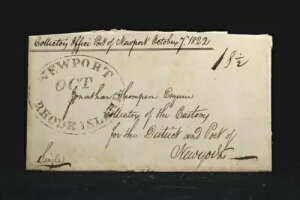 Collector's Office Port of Newport October 7th 1822
18½
NEWPORT
OCT
RHODE ISLAND
Jonathan Thompson Esquire
Collector of the Customs
for the District and Port of
New york
Single